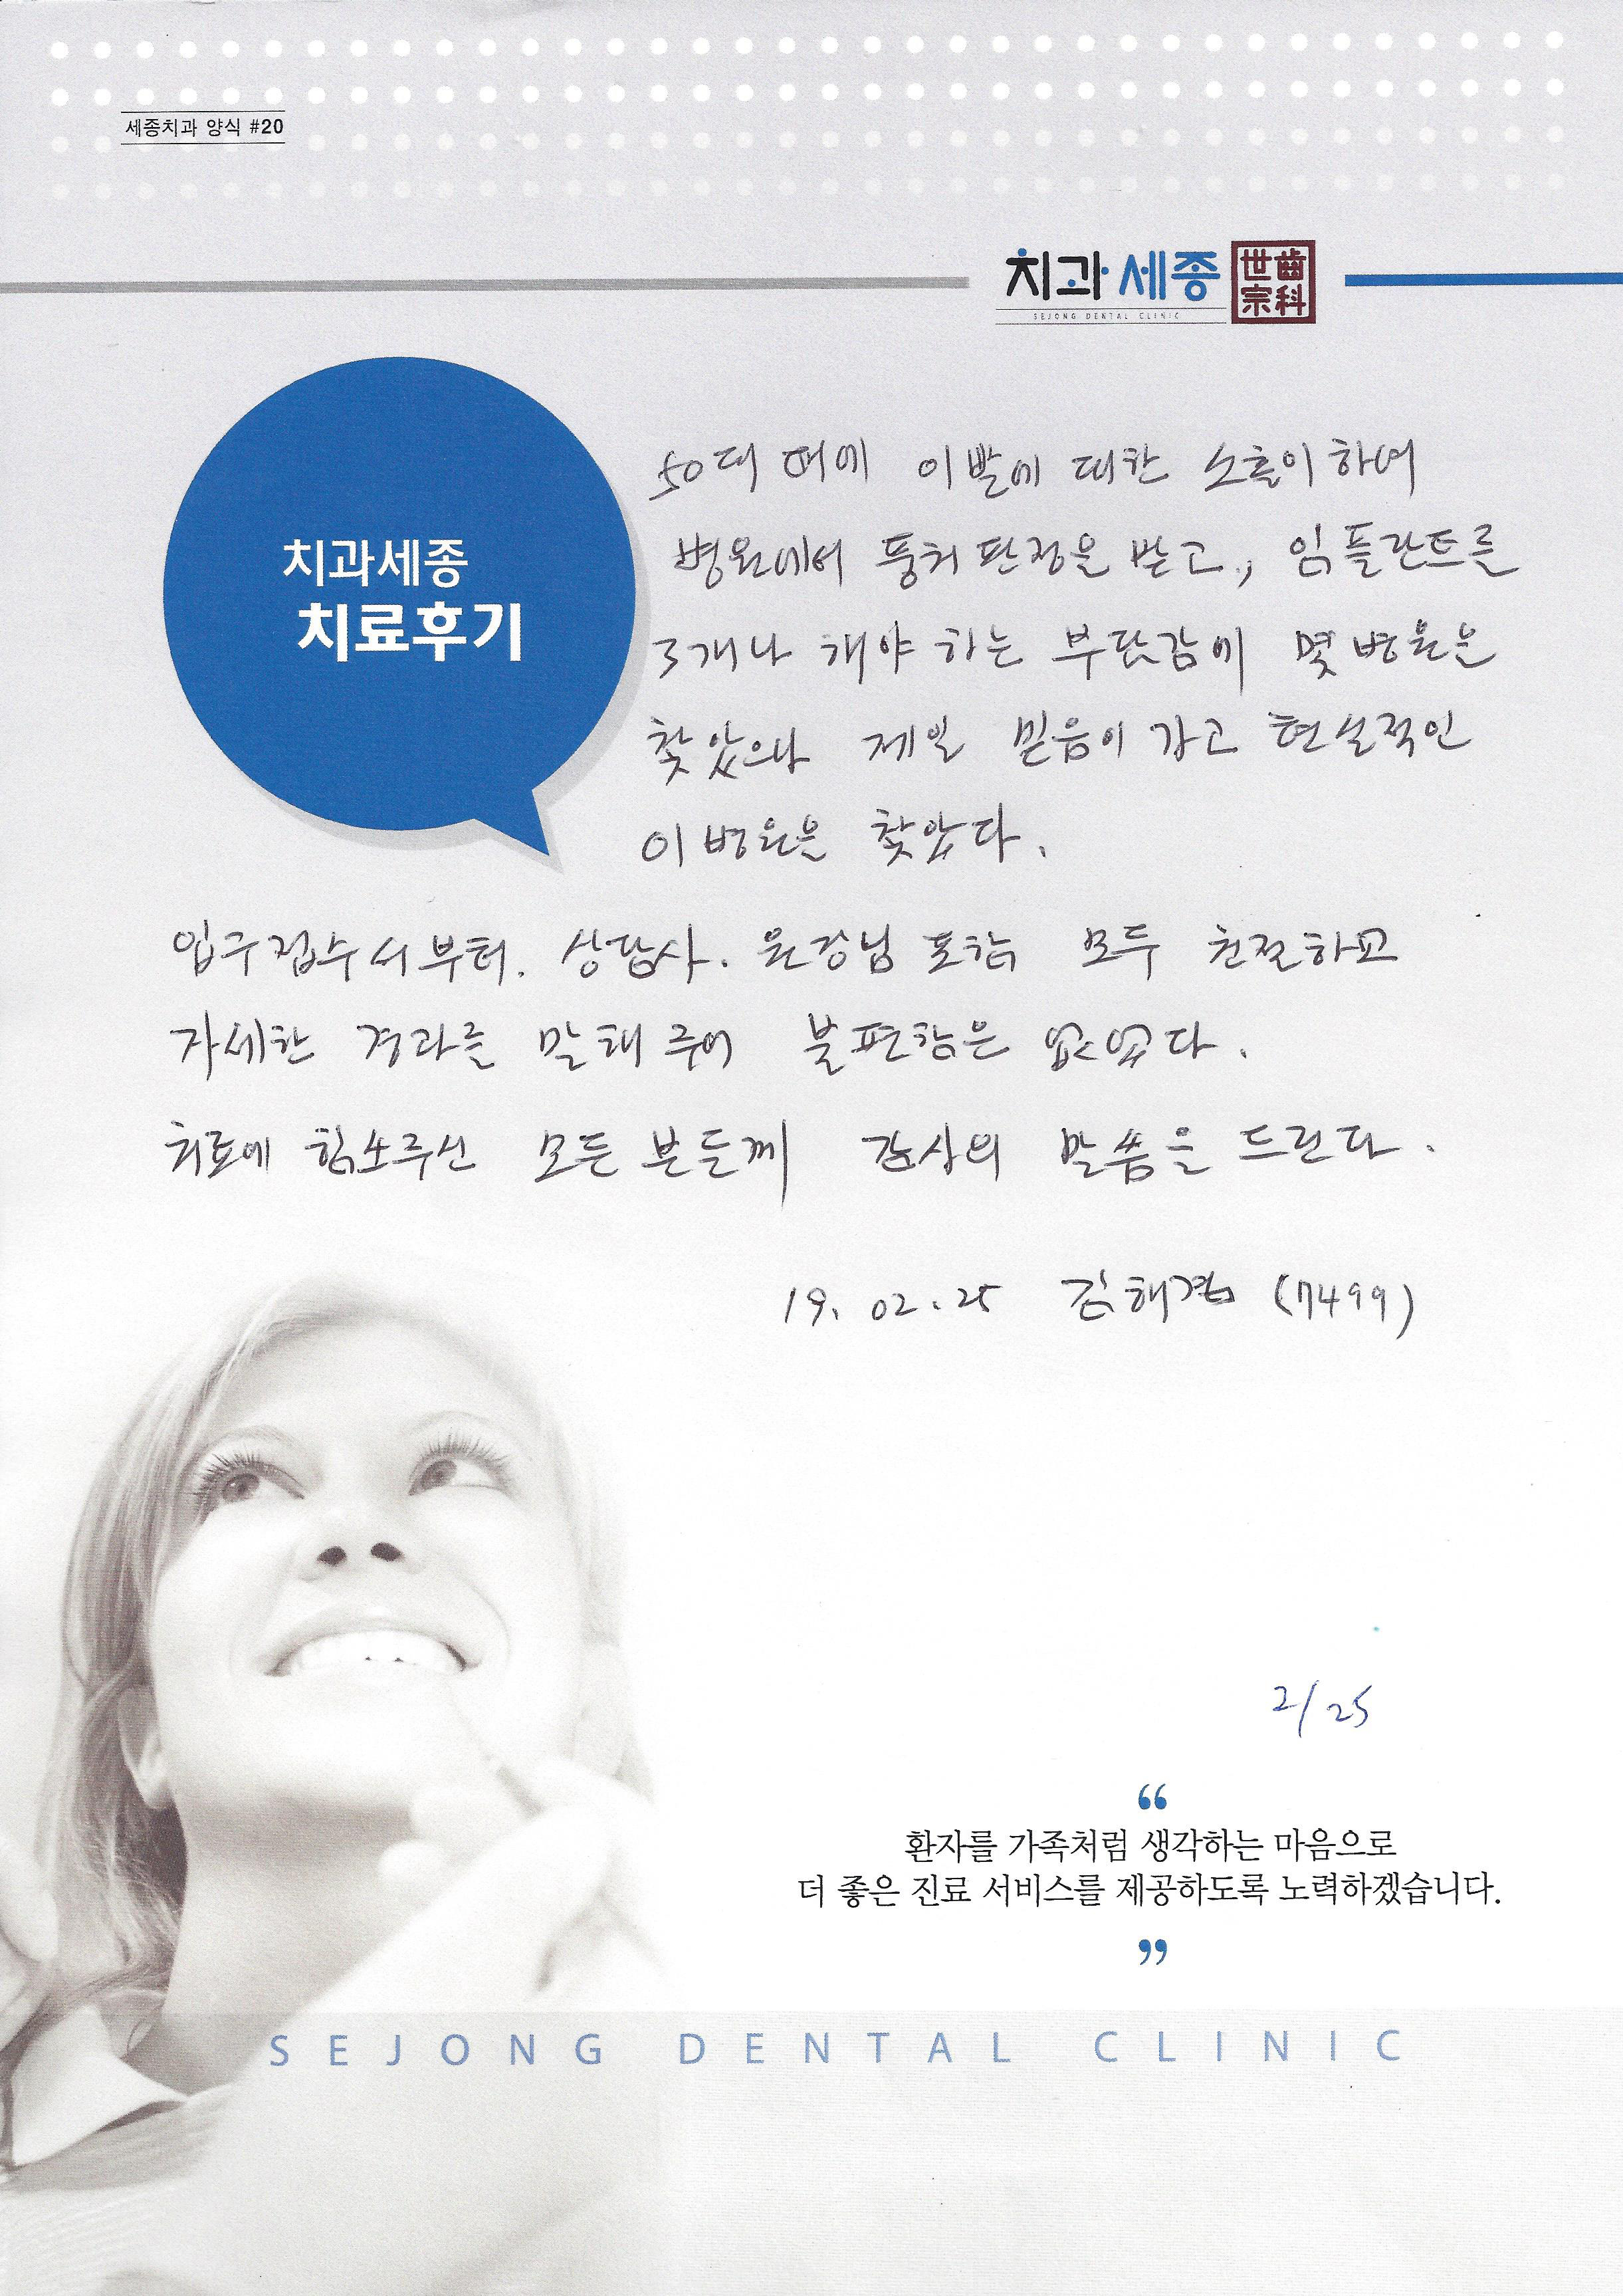 세종치과 양식 #20
치과세종
世齒
宗科
SEJONG DENTAL CLINIC
치과세종
치료후기
50대 때에 이빨에 대한 소홀이 하여
병원에서 풍치 판정을 받고, 임플란트를
3개나 해야 하는 부담감에 몇 병원을
찾았으나 제일 믿음이 가고 현실적인
이 병원을 찾았다.
입구 접수서부터. 상담사. 원장님 포함 모두 친절하고
자세한 경과를 말해 주어 불편함은 없었다.
치료에 힘쓰주신 모든 분들께 감사의 말씀을 드린다.
19. 02. 25 김해겸 (7499)
2/25
“
환자를 가족처럼 생각하는 마음으로
더 좋은 진료 서비스를 제공하도록 노력하겠습니다.
”
SEJONG DENTAL CLINIC